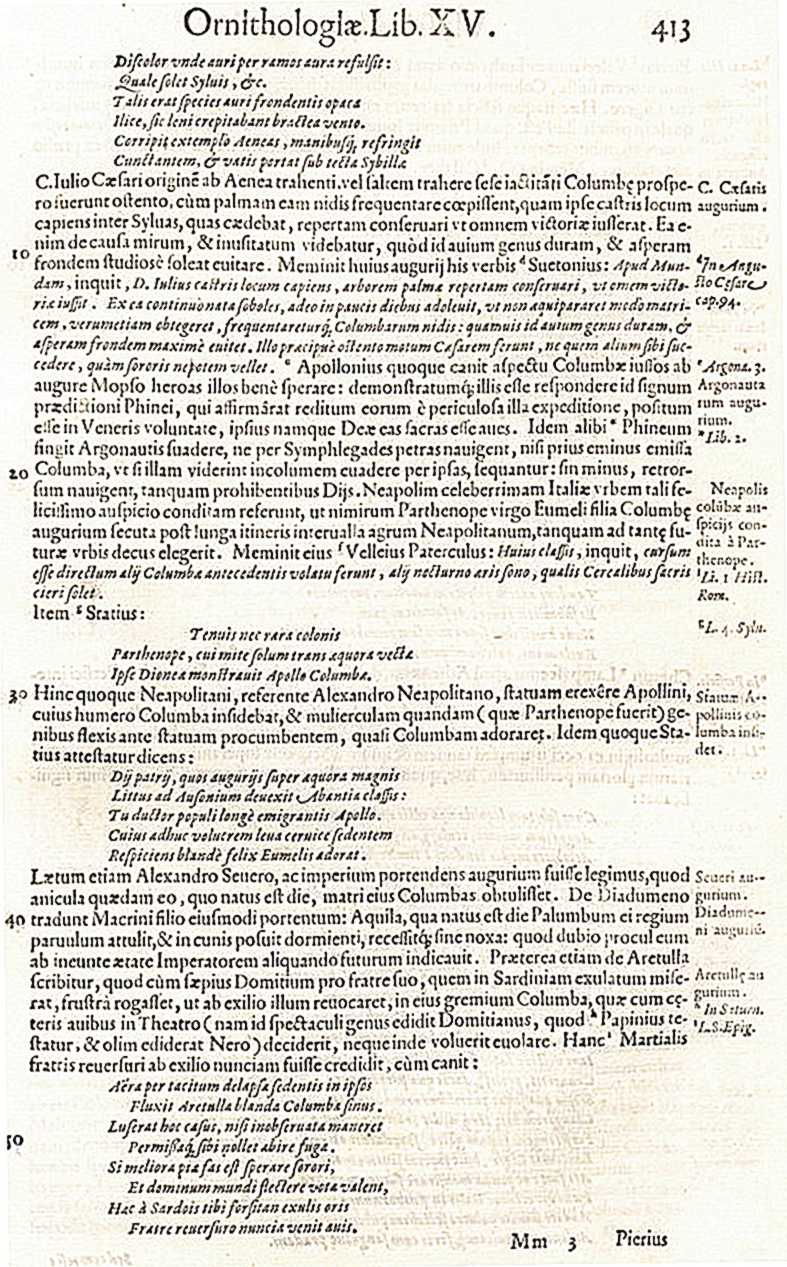 Ornithologiæ. Lib. XV. 413
Diſcolor vnde auri per ramos aura refulſit:
Quale ſolet Syluis, &c.
Talis erat ſpecies auri frondentis opaca
Ilice, ſic leni crepitabant bractea vento.
Corripit extemplò Aeneas, manibuſq́; refringit
Cunctantem, & vatis portat ſub tecta Sybillæ
C. Iulio Cæſari originẽ ab Aenea trahenti, vel ſaltem trahere ſeſe iactitãti Columbę proſpe-
ro fuerunt oſtento, cùm palmam eam nidis frequentare cœpiſſent, quam ipſe caſtris locum
capiens inter Syluas, quas cædebat, repertam conſeruari vt omnem victoriæ iuſſerat. Ea e-
nim de cauſa mirum, & inuſitatum videbatur, quòd id auium genus duram, & aſperam
10
frondem ſtudioſè ſoleat euitare. Meminit huius augurij his verbis ᵈ Suetonius: Apud Mun-
dam, inquit, D. Iulius caſtris locum capiens, arborem palmæ repertam conſeruari, vt omem victo-
riæ iuſſit. Ex ea continuò nata ſoboles, adeo in paucis diebus adoleuit, vt non æquipararet modo matri-
cem, verumetiam obtegeret, frequentareturq́; Columbarum nidis: quamuis id autum genus duram, &
aſperam frondem maximè euitet. Illo præcipuè oſtento motum Cæſarem ferunt, ne quem alium ſibi ſuc-
cedere, quàm ſororis nepotem vellet. ᵉ Apollonius quoque canit aſpectu Columbæ iuſſos ab
augure Mopſo heroas illos benè ſperare: demonſtratumq́; illis eſſe reſpondere id ſignum
prædictioni Phinei, qui affirmârat reditum eorum è periculoſa illa expeditione, poſitum
eſſe in Veneris voluntate, ipſius namque Deæ eas ſacras eſſe aues. Idem alibi * Phineum
fingit Argonautis ſuadere, ne per Symphlegades petras nauigent, niſi prius eminus emiſſa
20 Columba, vt ſi illam viderint incolumem euadere per ipſas, ſequantur: ſin minus, retror-
ſum nauigent, tanquam prohibentibus Dijs. Neapolim celeberrimam Italiæ vrbem tali fe-
liciſſimo auſpicio conditam referunt, ut nimirum Parthenope virgo Eumeli filia Columbę
augurium ſecuta poſt longa itineris interualla agrum Neapolitanum, tanquam ad tantę fu-
turæ vrbis decus elegerit. Meminit eius ᶠ Velleius Paterculus: Huius claſſis, inquit, curſum
eſſe directum alij Columbæ antecedentis volatu ferunt, alij nocturno æris ſono, qualis Cerealibus ſacris
cieri ſolet.
Item ᵍ Statius:
Tenuis nec rara colonis
Parthenope, cui mite ſolum trans æquora vecta
Ipſe Dionea monſtrauit Apollo Columba.
30 Hinc quoque Neapolitani, referente Alexandro Neapolitano, ſtatuam erexêre Apollini,
cuius humero Columba inſidebat, & mulierculam quandam (quæ Parthenope fuerit) ge-
nibus flexis ante ſtatuam procumbentem, quaſi Columbam adoraret. Idem quoque Sta-
tius atteſtatur dicens:
Dij patrij, quos augurijs ſuper æquora magnis
Littus ad Auſonium deuexit Abantia claſſis:
Tu ductor populi longè emigrantis Apollo.
Cuius adhuc volucrem leua ceruice ſedentem
Reſpiciens blandè felix Eumelis adorat.
Lætum etiam Alexandro Seuero, ac imperium portendens augurium fuiſſe legimus, quod
anicula quædam eo, quo natus eſt die, matri eius Columbas obtuliſſet. De Diadumeno
40 tradunt Macrini filio eiuſmodi portentum: Aquila, qua natus eſt die Palumbum ei regium
paruulum attulit, & in cunis poſuit dormienti, receſſitq́; ſine noxa: quod dubio procul eum
ab ineunte ætate Imperatorem aliquando futurum indicauit. Præterea etiam de Aretulla
ſcribitur, quod cùm ſæpius Domitium pro fratre ſuo, quem in Sardiniam exulatum miſe-
rat, fruſtrà rogaſſet, ut ab exilio illum reuocaret, in eius gremium Columba, quæ cum cę-
teris auibus in Theatro (nam id ſpectaculi genus edidit Domitianus, quod ʰ Papinius te-
ſtatur, & olim ediderat Nero) deciderit, neque inde voluerit euolare. Hanc ⁱ Martialis
fratris reuerſuri ab exilio nunciam fuiſſe credidit, cùm canit:
Aëra per tacitum delapſa ſedentis in ipſos
Fluxit Aretulla blanda Columba ſinus.
Luſerat hoc caſus, niſi inobſeruata maneret
50
Permiſſaq́; ſibi nollet abire fuga.
Si meliora pia fas eſt ſperare ſorori,
Et dominum mundi flectere vota valent,
Hac à Sardois tibi forſitan exulis oris
Fratre reuerſuro nuncia venit auis.
Mm 3 Pierius
C. Cæſaris
augurium.
ᵈIn Augu-
ſto Ceſare
cap. 94.
ᵉArgona. 3.
Argonauta
rum augu-
rium.
*Lib. 2.
Neapolis
colũbæ au-
ſpicijs con-
dita à Par-
thenope.
ᶠLi. 1 Hiſt.
Rom.
ᵍL. 4. Sylu.
Statuæ A-
pollinis co-
lumba inſi-
det.
Seueri au-
gurium.
Diadume-
ni auguriũ.
Aretullę au
gurium.
ʰIn Saturn.
ⁱL. 8. Epig.